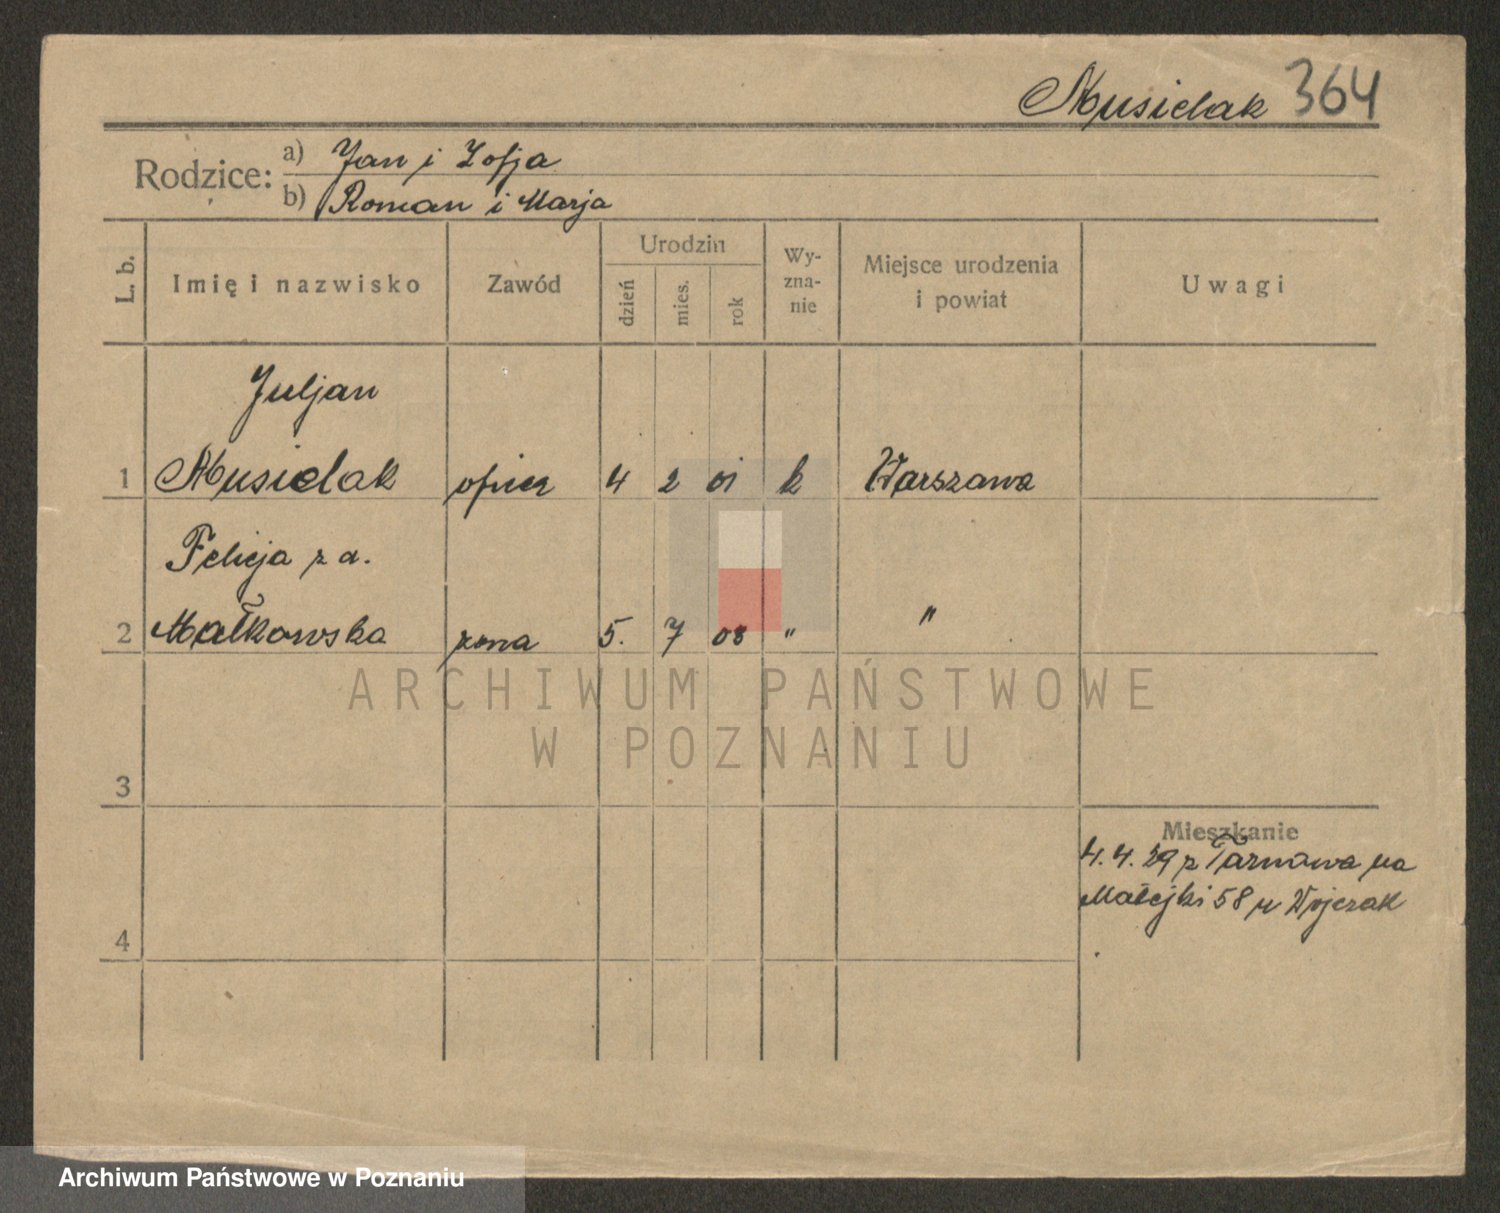 Musielak 364
Rodzice: a) Jan i Zofja
b) Roman i Marja
L. b.
Imię i nazwisko
Zawód
Urodzin
dzień
mies.
rok
Wy-
zna-
nie
Miejsce urodzenia
i powiat
Uwagi
Juljan
1 Musielak oficer 4 2 01 k Warszawa
Felicja z d.
2 Małkowska żona 5. 7 08 " "
ARCHIWUM PAŃSTWOWE
W POZNANIU
3
Mieszkanie
4.4.29 z Tarnowa na
Matejki 58 u Wojczak
4
Archiwum Państwowe w Poznaniu